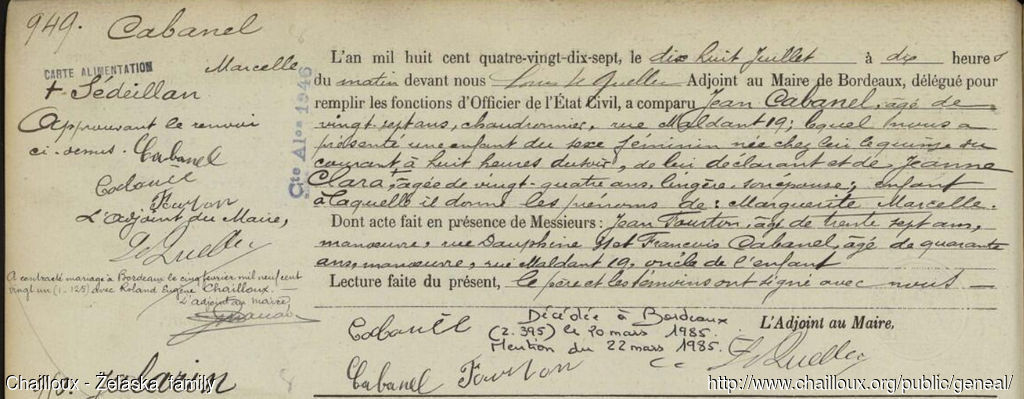 949. Cabanel
Marcelle
CARTE ALIMENTATION
+ Sédeillan
Approuvant le renvoi
ci-dessus. Cabanel
Cabanel
Fourton
L'adjoint du Maire,
A contracté mariage à Bordeaux le cinq février mil neuf cent
vingt un (1-125) avec Roland Eugène Chailloux. —
L'adjoint au maire
Cte Alon 1946
L'an mil huit cent quatre-vingt-dix-sept, le dix huit Juillet à dix heures
du matin devant nous Adjoint au Maire de Bordeaux, délégué pour
remplir les fonctions d'Officier de l'État Civil, a comparu Jean Cabanel, âgé de
vingt-sept ans, chaudronnier, rue Maldant 19; lequel nous a
présenté une enfant du sexe féminin née chez lui le quinze du
courant à huit heures du soir, de lui déclarant et de Jeanne
Clara, + âgée de vingt-quatre ans, lingère, son épouse; enfant
à laquelle il donne les prénoms de: Marguerite Marcelle.
Dont acte fait en présence de Messieurs: Jean Fourton, âgé de trente sept ans,
manœuvre, rue Dauphine et François Cabanel, âgé de quarante
ans, manœuvre, rue Maldant 19, oncle de l'enfant
Lecture faite du présent, le père et les témoins ont signé avec nous —
Cabanel
Décédée à Bordeaux
(2.395) le 20 mars 1985.
Mention du 22 mars 1985.
L'Adjoint au Maire,
Cabanel Fourton
Chailloux - Zelaska family
http://www.chailloux.org/public/geneal/